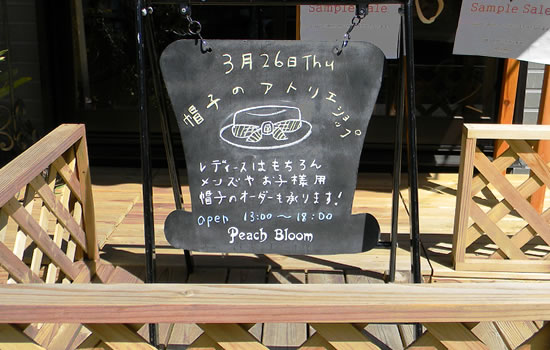 Sample Sale
Sample Sale
3月26日Thu
帽子のアトリエショップ
レディースはもちろん
メンズやお子様用
帽子のオーダーも承ります！
open 13:00～18:00
Peach Bloom